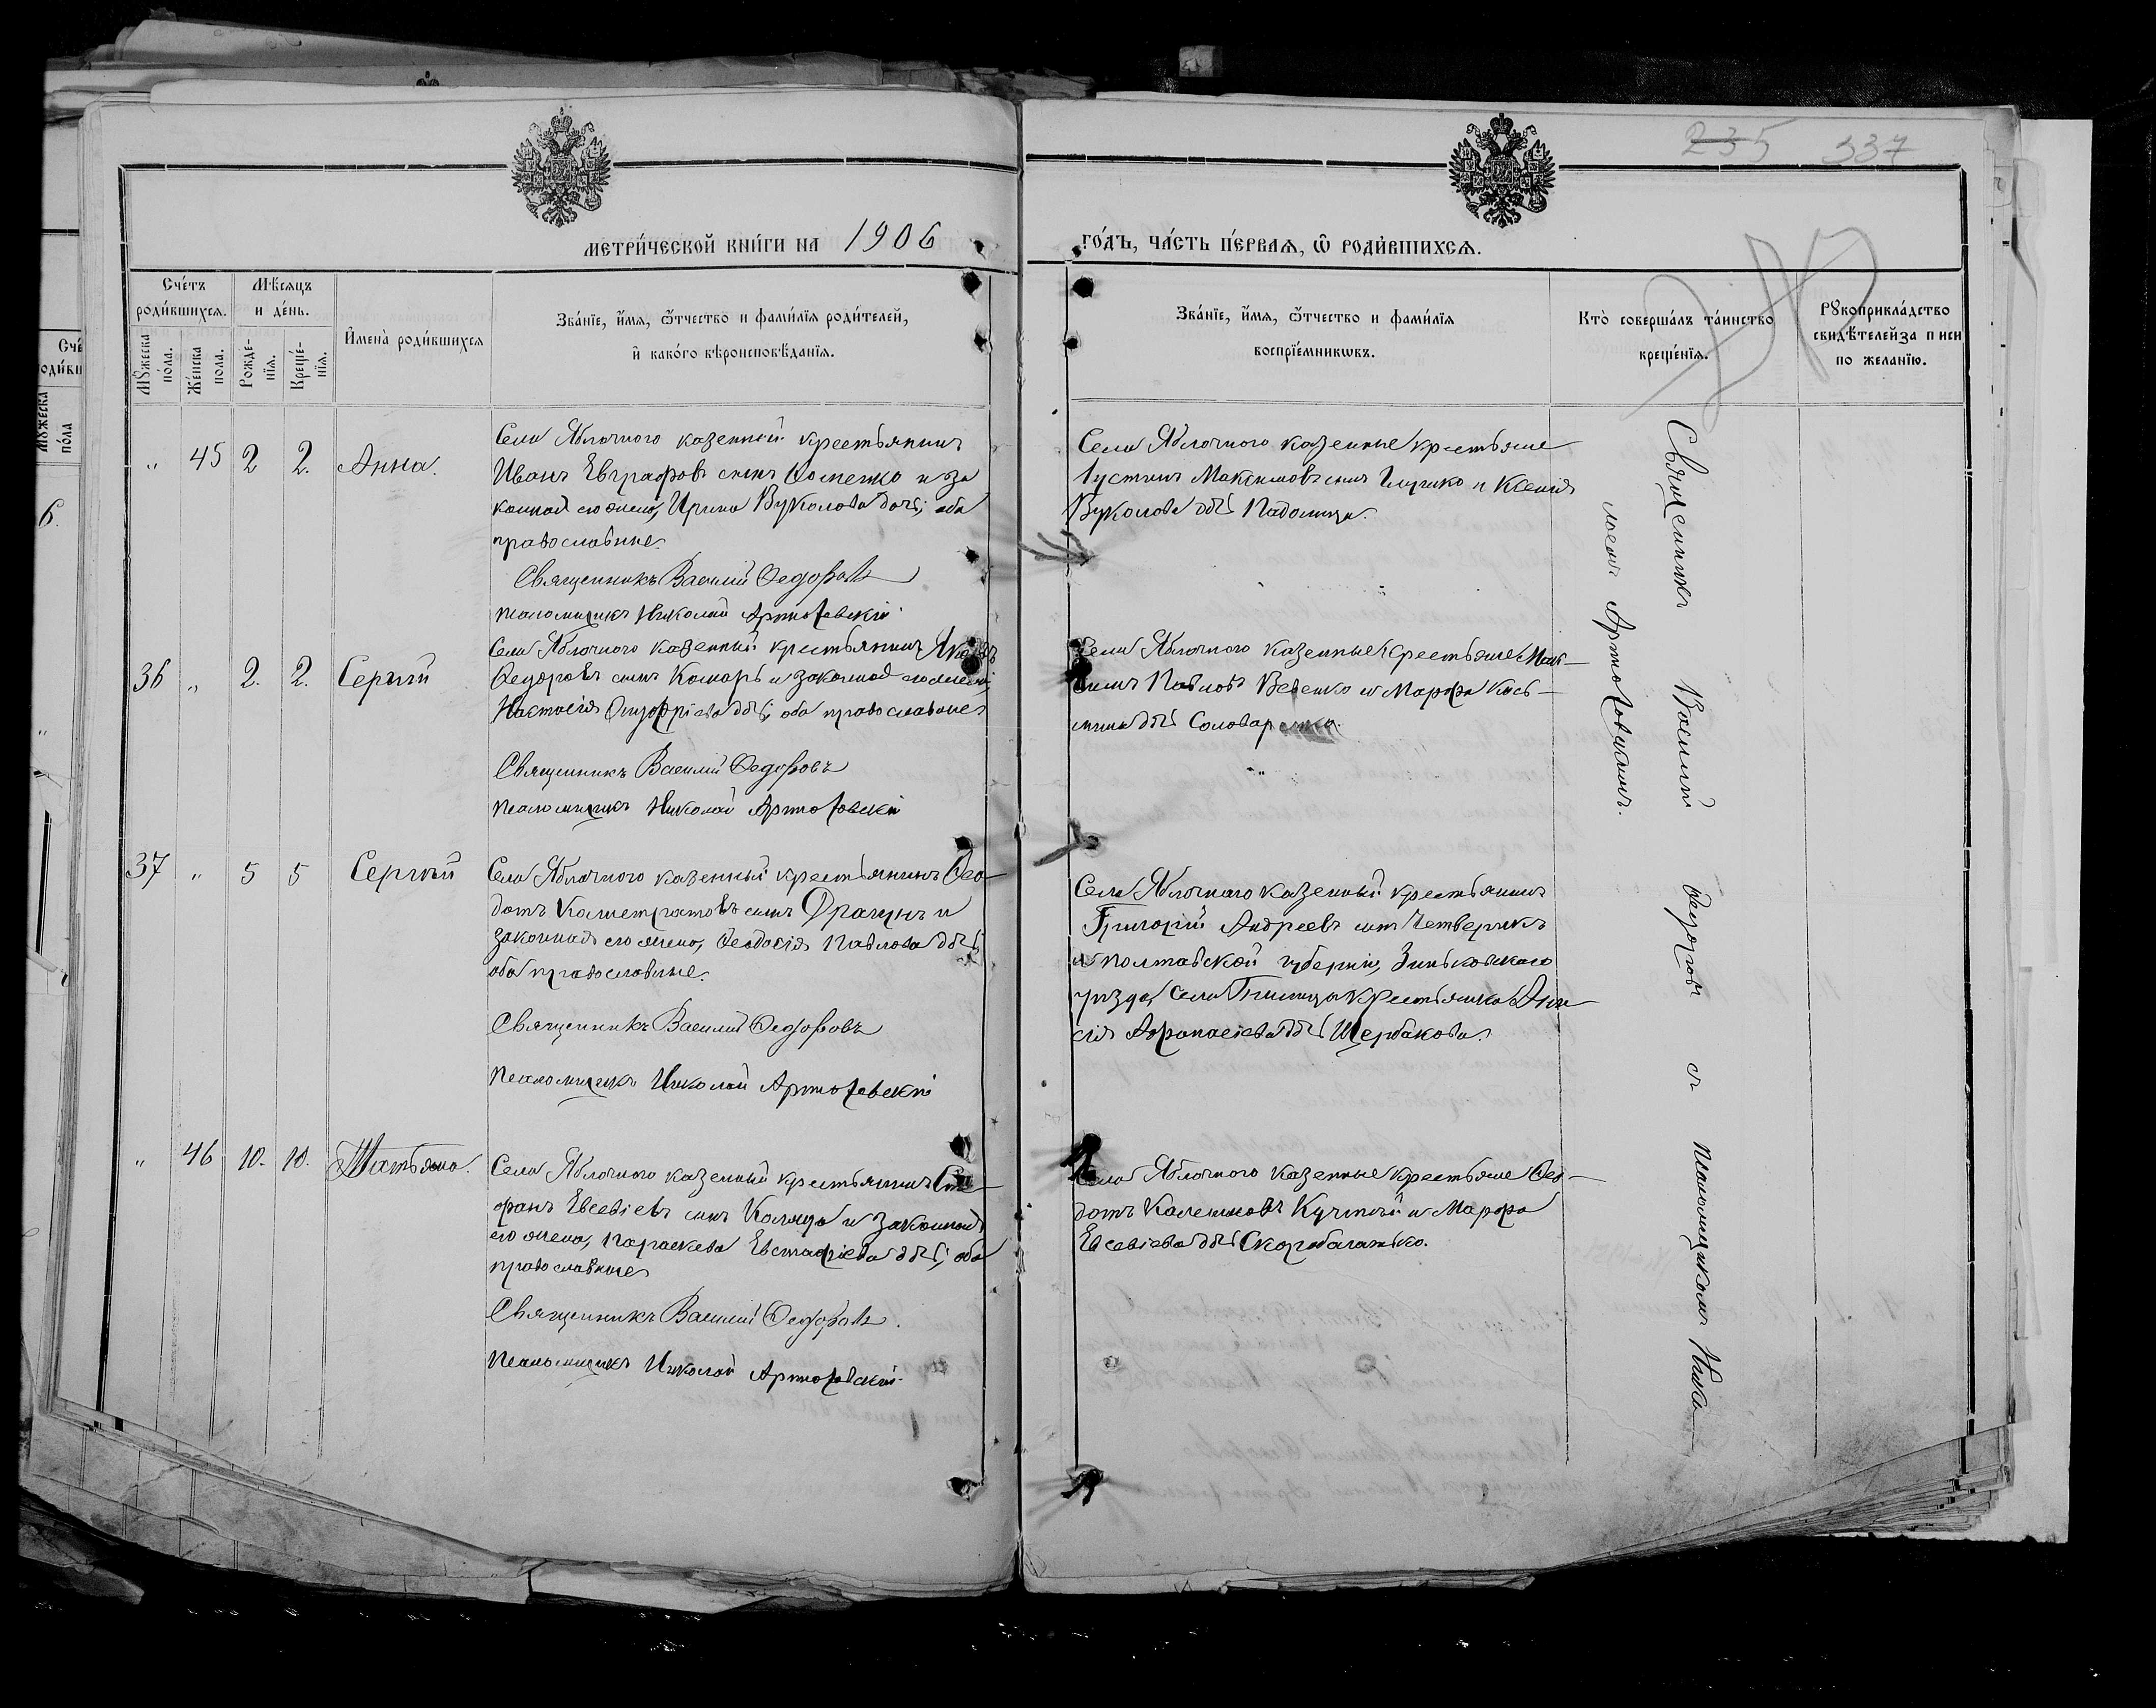 235 337
МЕТРИ́ЧЕСКОЙ КНИ́ГИ НА 1906
ГО́ДЪ, ЧА́СТЬ ПЕ́РВАѦ, Ѽ РОДИ́ВШИХСѦ.
Сче́тъ роди́вшихсѧ.
Мꙋ́жеска по́ла.
Же́нска пола.
Мѣ́сѧцъ и де́нь.
Рожде-нїѧ.
Креще́-нїѧ.
И҆мена̀ роди́вшихсѧ
Зва́нїе, и҆́мѧ, ѻ҆́тчество и фами́лїѧ роди́телей,
и҆ како́гѡ вѣроисповѣ́данїѧ.
Зва́нїе, и҆́мѧ, ѻ҆́тчество и фами́лїѧ
воспрїе́мникѡвъ.
Кто̀ соверша́лъ та́инство
креще́нїѧ.
Рꙋкоприкла́дство
свидѣ́телей за п иси
по жела́нїю.
" 45 2 2. Анна.
Села Яблочного казенный крестьянинъ
Иванъ Евграфовъ сынъ и за
конная его жена, Ирина Вуколова дочь; оба
православные.
Священникъ Василий Ѳедоровъ
псаломщикъ Николай Артюховскій
Села Яблочного казенные крестьяне
Іустинъ Максимовъ сынъ и Ксенія
Вуколова дочь
36 " 2. 2. Сергѣй
Села Яблочного казенный крестьянинъ Яковъ
Ѳедоровъ сынъ Комарь и законная его жена,
Настасія Онуфріева дочь; оба православные
Священникъ Василий Ѳедоровъ
псаломщикъ Николай Артюховскій
Села Яблочного казенные крестьяне Мак-
симъ Павловъ и Марфа Кось-
мина дочь
37 " 5 5 Сергѣй
Села Яблочного казенный крестьянинъ Ѳео-
дотъ Калистратовъ сынъ Драгунъ и
законная его жена, Ѳеодосія Павлова дочь
оба православные.
Священникъ Василий Ѳедоровъ
псаломщикъ Николай Артюховскій
Села Яблочнаго казенный крестьянинъ
Григорій Андреевъ сынъ Четверикъ
и Полтавской губерніи, Зиньковскаго
уѣзда, села крестьянка Ани-
сія Афанасіева дочь Щербакова.
" 46 10. 10. Татьяна.
Села Яблочного казенный крестьянинъ Сте-
фанъ Евсевіевъ сынъ Коляда и законная
его жена, Параскева Евстафіева дочь; оба
православные
Священникъ Василий Ѳедоровъ.
псаломщикъ Николай Артюховскій.
Села Яблочного казенные крестьяне Ѳео-
дотъ и Марфа
Евсевіева дочь Скоробагатько.
Священникъ Василій Ѳедоровъ съ псаломщикомъ Нико-
лаемъ Артюховскимъ.